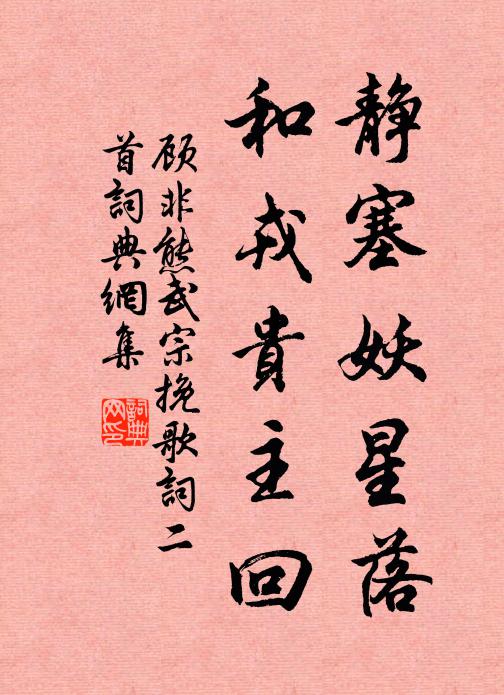 静塞妖星落
和戎貴主回
顾非熊武宗挽歌詞二
首詞典網集
詞典
网印